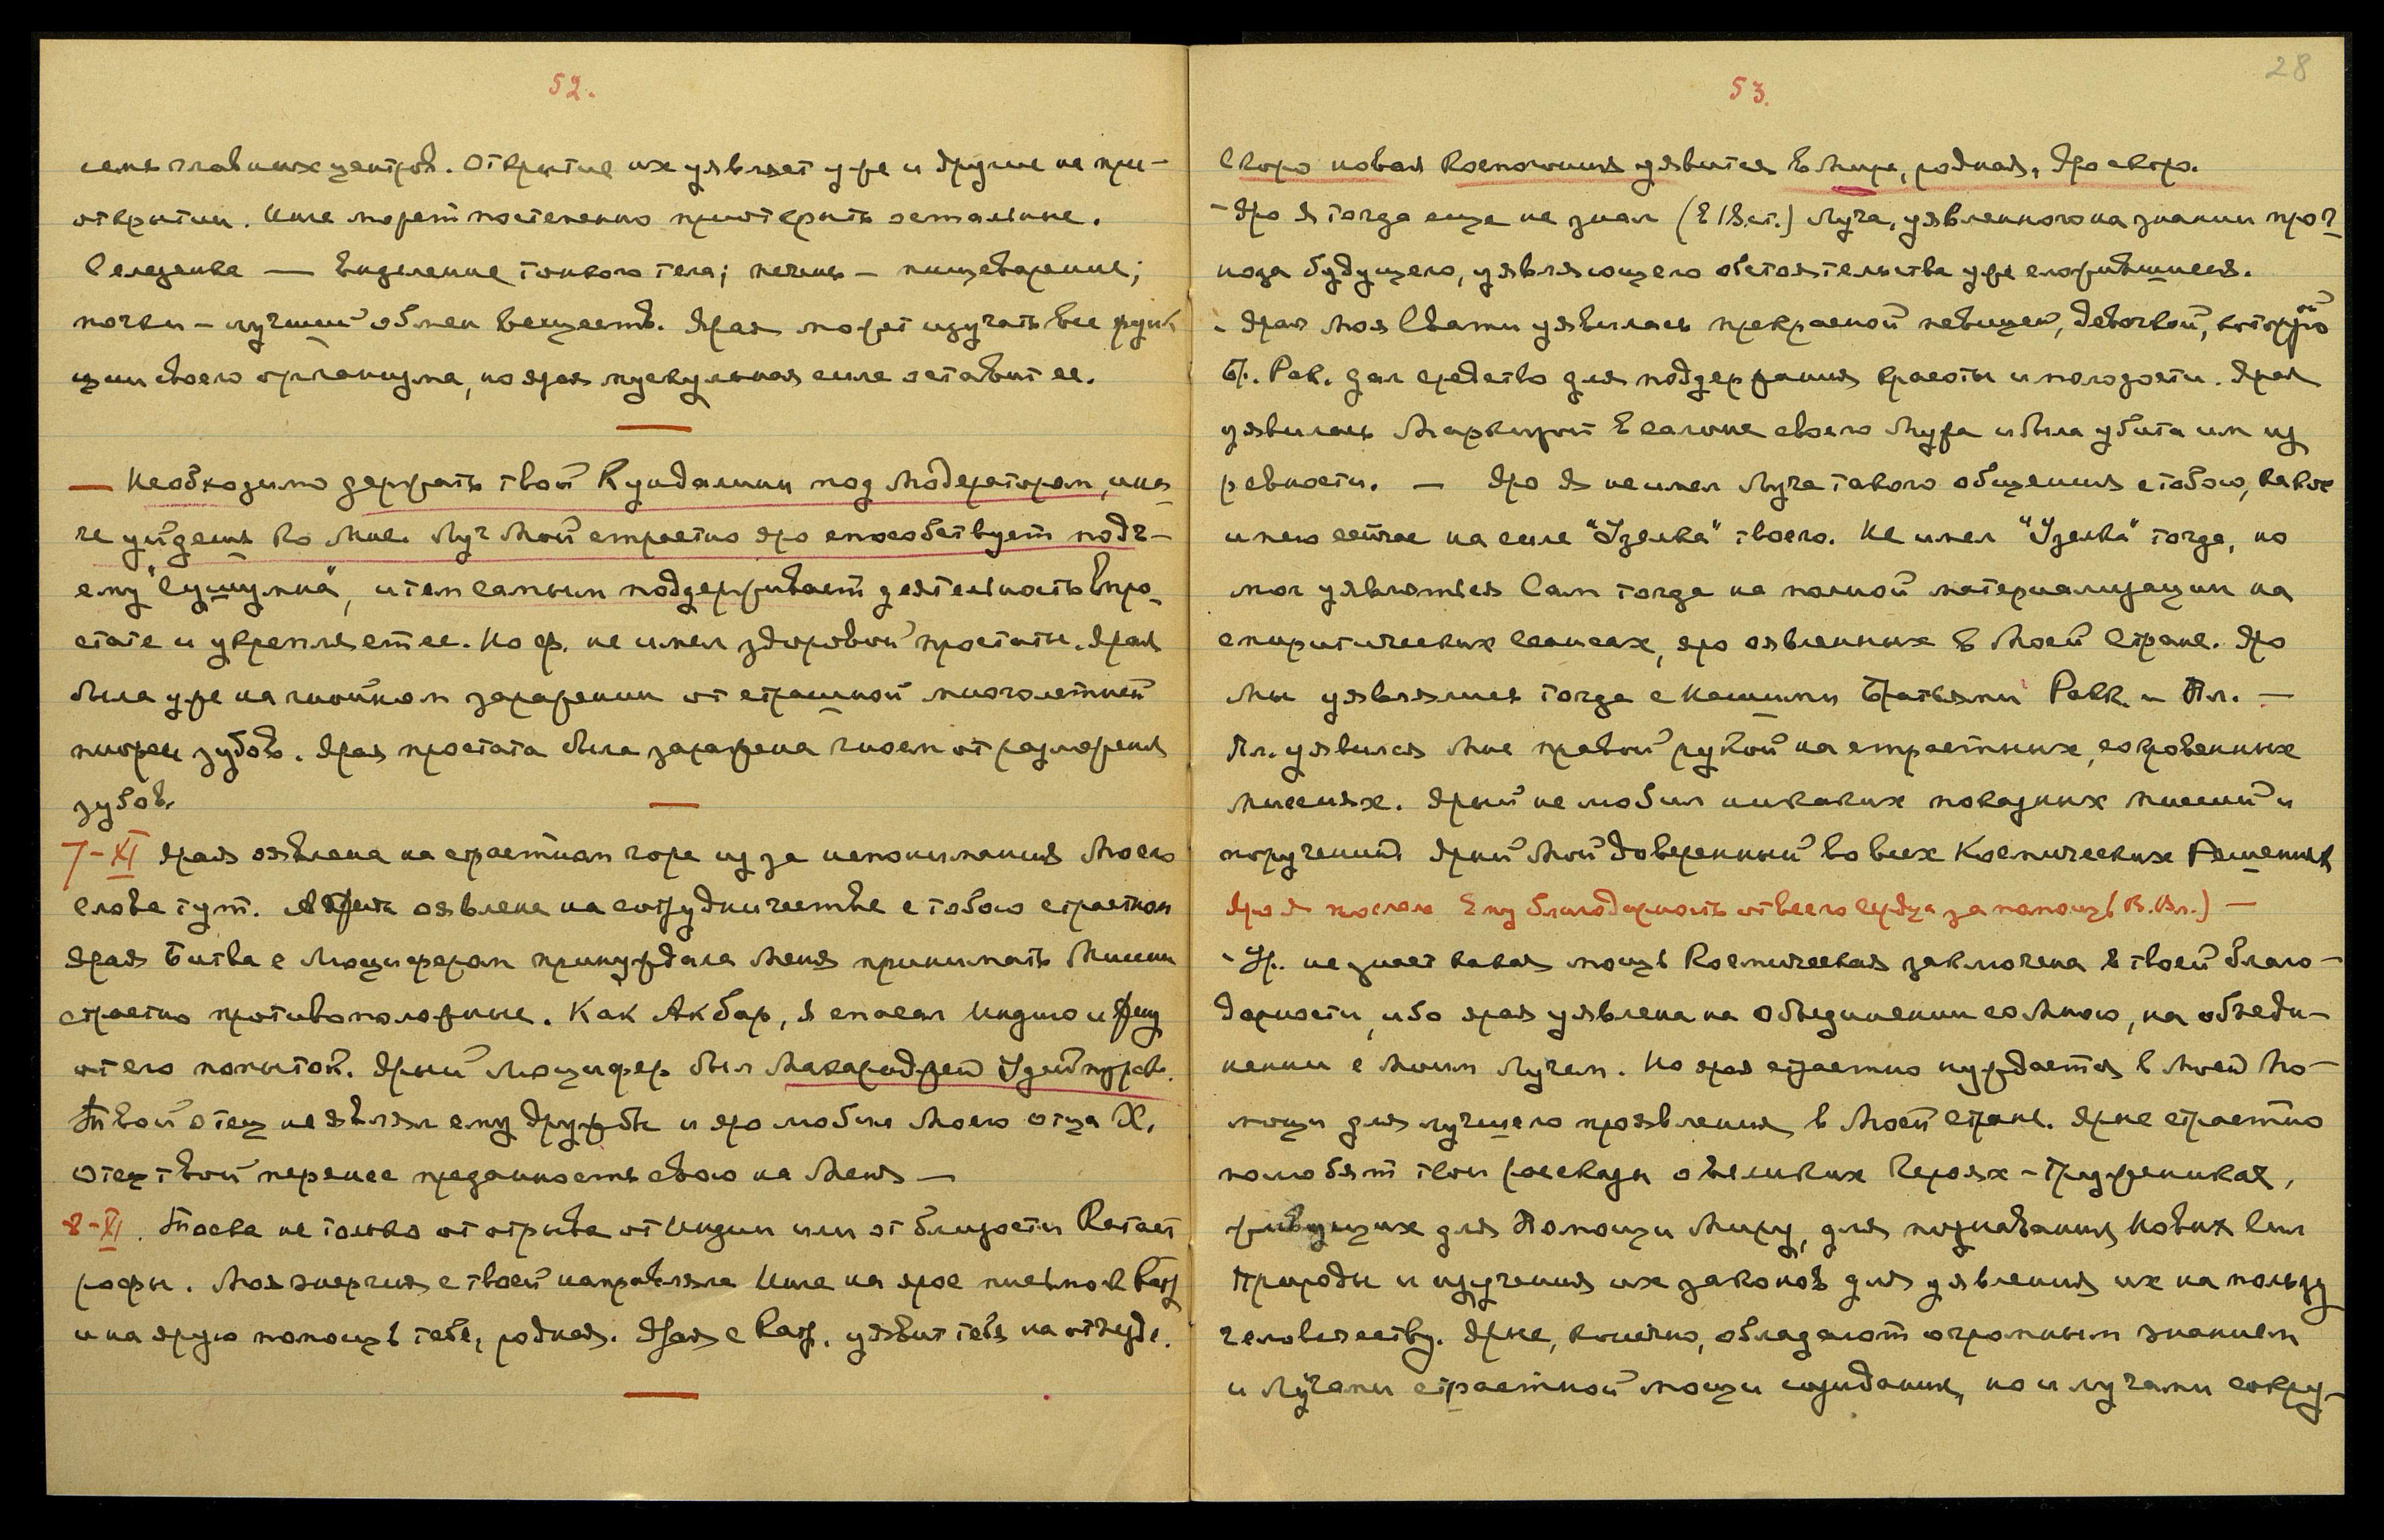 52.
семь главных центров. Открытие их уявляет уже и другие на при-
открытии. Иные может постепенно приоткрыть остальные.
Селезенка — выделение тонкого тела; печень — пищеварение;
почки — лучший обмен веществ. Ярая может изучать все функ
ции своего организма, но ярая мускульная сила оставит ее.
— Необходимо держать твой Кундалини под Модератором, ина-
че уйдешь ко Мне. Луч Мой страстно яро способствует подъ-
ему "Сушумна", и тем самым поддерживает деятельность в про-
стате и укрепляет ее. Но ф. не имел здоровой простаты. Ярая
была уже на гнойном заражении от страшной многолетней
пиореи зубов. Ярая простата была заражена гноем от разложения
зубов.
7-XI Ярая оявлена на страстном горе из за непонимания Моего
слова тут. оявлена на сотрудничестве с тобою страстном
Ярая Битва с Люцифером принуждала Меня принимать Миссии
страстно противоположные. Как Акбар, я спасал Индию и
от его попыток. Ярый Люцифер был Махараджей Удайпура.
Твой отец не являл ему дружбы и яро любил Моего отца Х.
Отец твой перенес преданность свою на Меня —
8-XI. Тоска не только от отрыва от Индии или от близости Катаст
рофы. Моя энергия с твоей направляла Иные на ярое письмо к Кат
и на ярую помощь тебе, родная. Ярая с Кат. уявит тебя на отъезде.
28
53.
Скоро новая Космогония уявится в Мире, родная, яро скоро.
- Яро Я тогда еще не знал (в 18.ст.) Луча, уявленного на знании прог-
ноза будущего, уявляющего обстоятельства уже сложившиеся.
- Ярая Моя Свати уявилась прекрасной певицей, девочкой, которой
Бр. Рак. дал средство для поддержания красоты и молодости. Ярая
уявилась Маркизой в салоне своего Мужа и была убита им из
ревности. — Яро Я не имел Луча такого общения с тобою, какое
имею сейчас на силе "Узелка" твоего. Не имел "Узелка" тогда, но
мог уявляться Сам тогда на полной материализации на
спиритических сеансах, яро оявленных в Моей Стране. Яро
Мы уявлялись тогда с Нашими Братьями Рак. и Пл. —
Пл. уявился Мне правой рукой на страстных, сокровенных
миссиях. Ярый не любил никаких показных миссий и
поручений. Ярый Мой доверенный во всех Космических Решениях
Яро Я послала Ему благодарность от всего сердца за помощь (В. Вл.) —
- Ур. не знает какая мощь Космическая заключена в твоей благо-
дарности, ибо ярая уявлена на Объединении со Мною, на объеди-
нении с Моим Лучом. Но ярая страстно нуждается в Моей По-
мощи для лучшего проявления в Моей стране. Ярые страстно
полюбят твои рассказы о великих Героях-Тружениках,
живущих для Помощи Миру, для познавания Новых Сил
Природы и изучения их законов для уявления их на пользу
человечеству. Ярые, конечно, обладают огромным знанием
и Лучами страстной мощи созидания, но и лучами сокру-